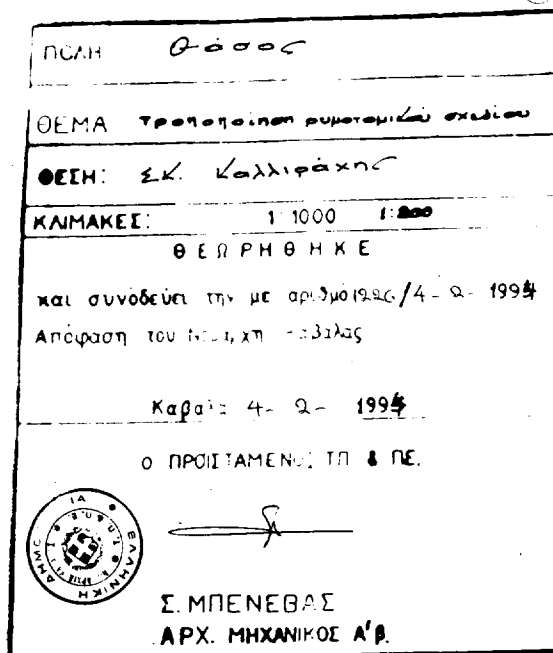 ΠΟΛΗ Θάσος
ΘΕΜΑ Τροποποίηση ρυμοτομικού σχεδίου
ΘΕΣΗ: Σ.Κ. Καλλιράχης
ΚΛΙΜΑΚΕΣ: 1:1000 1:200
ΘΕΩΡΗΘΗΚΕ
και συνοδεύει την με αριθμό 1226/4-2-1994
Απόφαση του Νομάρχη Καβάλας
Καβάλα 4-2-1994
Ο ΠΡΟΙΣΤΑΜΕΝΟΣ ΤΠ & ΠΕ.
ΕΛΛΗΝΙΚΗ ΔΗΜΟΚΡΑΤΙΑ
Σ. ΜΠΕΝΕΒΑΣ
ΑΡΧ. ΜΗΧΑΝΙΚΟΣ Α'β.